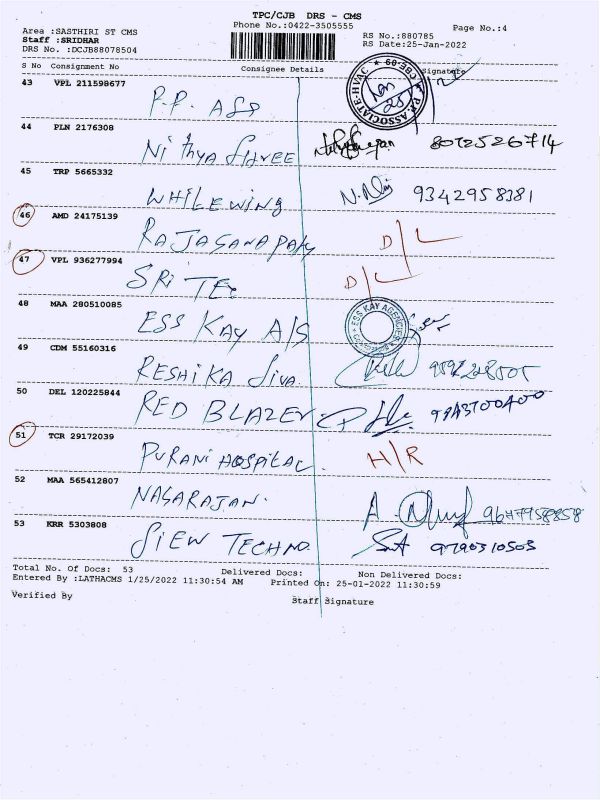 TPC/CJB DRS - CMS
Phone No.:0422-3505555 Page No.:4
Area :SASTHIRI ST CMS RS No.:880785
Staff :SRIDHAR RS Date:25-Jan-2022
DRS No. :DCJB88078504
S No Consignment No Consignee Details Signature
43 VPL 211598677
P.P. ASS
P.P. ASSOCIATE-HVAC
44 PLN 2176308
Nithya Shree 8012526714
45 TRP 5665332
WHILEWING 9342958381
46 AMD 24175139
RAJAGANAPAthy D/L
47 VPL 936277994
SRI TEC D/L
48 MAA 280510085
ESS KAY A/S ESS KAY AGENCIES
49 CDM 55160316
RESHIKA Siva.
50 DEL 120225844
RED BLAZER 9843700400
51 TCR 29172039
PURANI HOSPITAL H/R
52 MAA 565412807
NAGARAJAN. 9647958858
53 KRR 5303808
SIEW TECHNO. 9790310503
Total No. Of Docs: 53 Delivered Docs: Non Delivered Docs:
Entered By :LATHACMS 1/25/2022 11:30:54 AM Printed On: 25-01-2022 11:30:59
Verified By Staff Signature